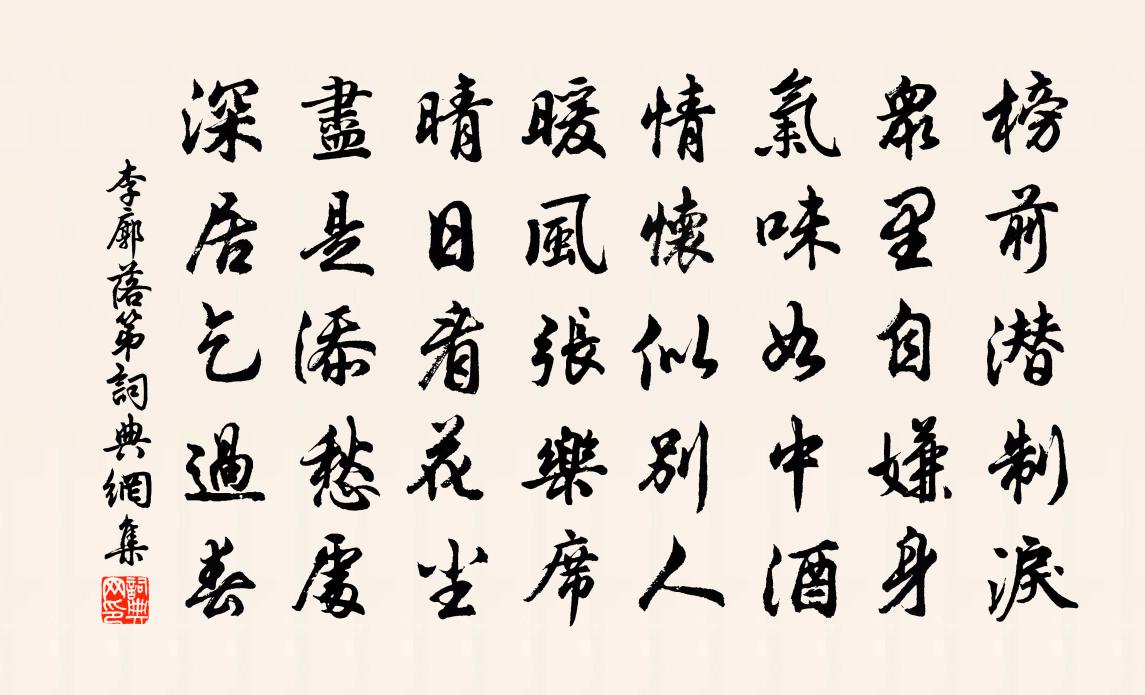 榜前潜制淚
衆里自嫌身
氣味如中酒
情懷似別人
暖風張樂席
晴日看花尘
盡是添愁處
深居乞過春
李廓落第詞典網集
詞典网印